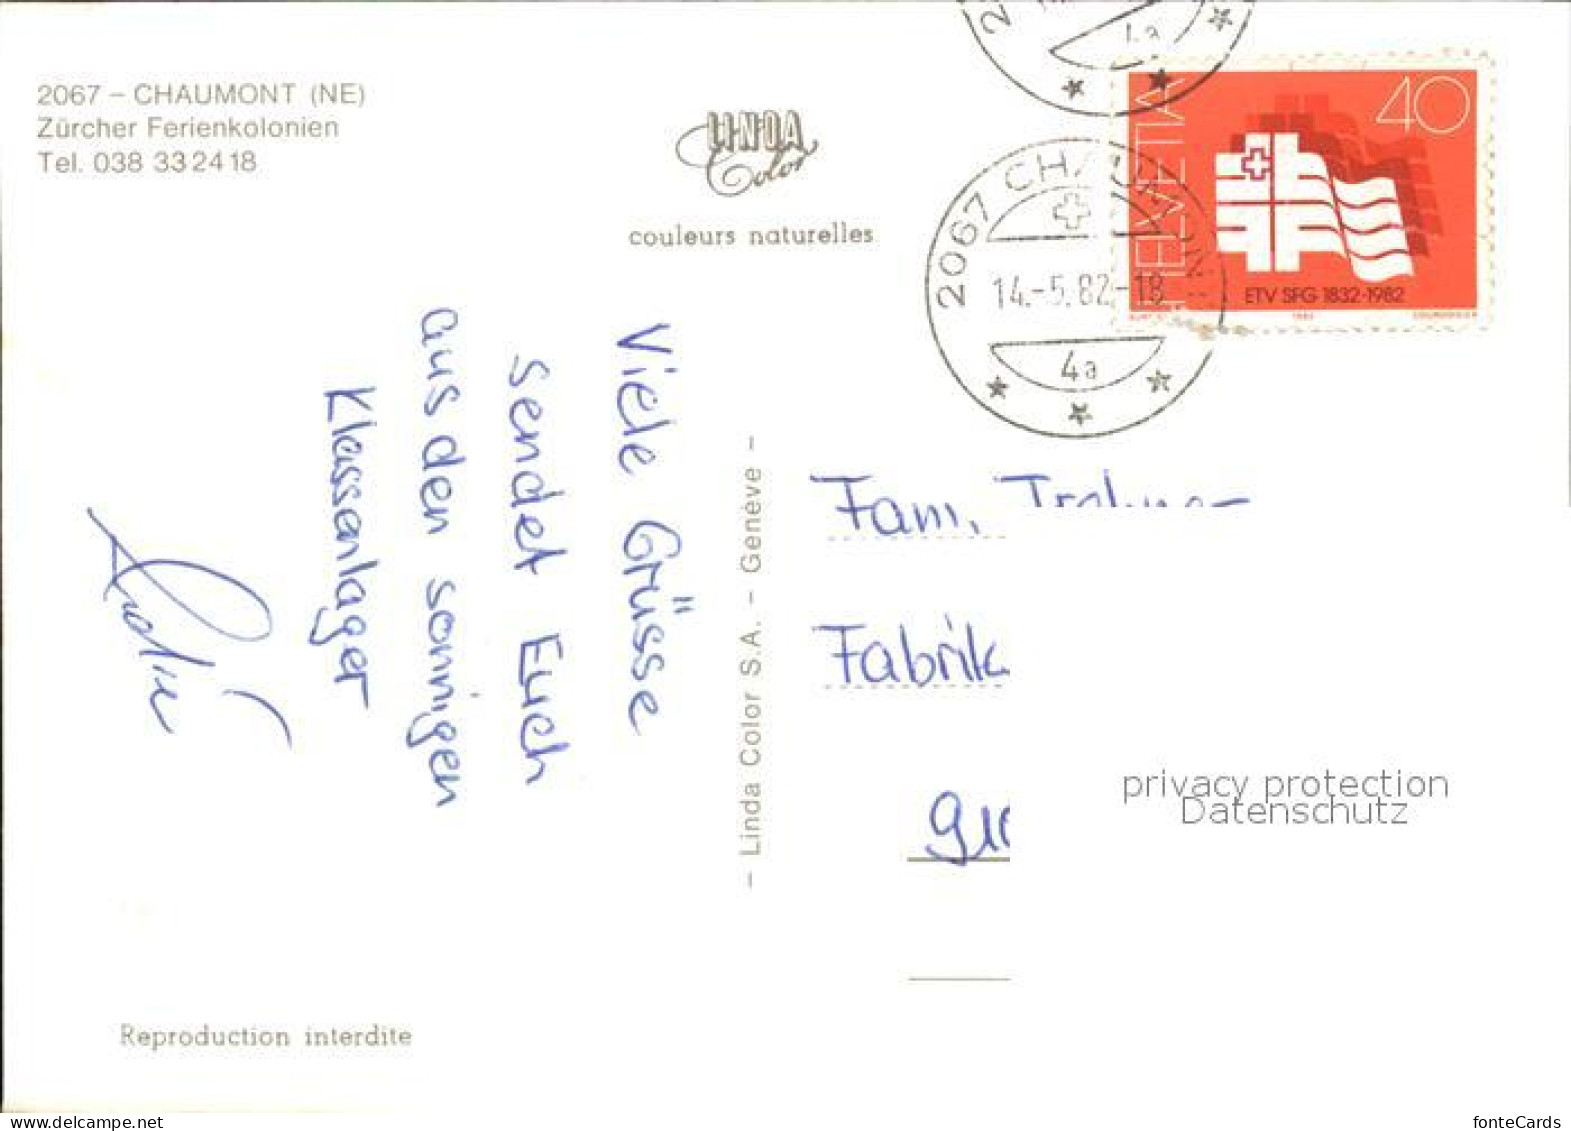 2067 – CHAUMONT (NE)
Zürcher Ferienkolonien
Tel. 038 33 24 18
LINDA
Color
couleurs naturelles
HELVETIA
40
ETV SFG 1832-1982
1982
COURVOISIER
2067 CHAUMONT NE
14.-5.82-18
4a
4a
Viele Grüsse
sendet Euch
aus den sonnigen
Klassenlager
– Linda Color S.A. – Genève –
Fam.
Fabrik
privacy protection
Datenschutz
Reproduction interdite
www.delcampe.net
fonteCards